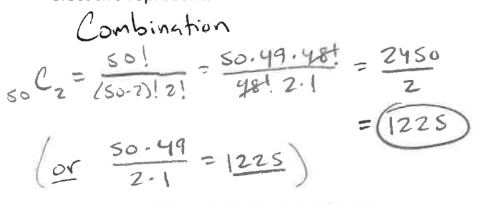 Combination
₅₀C₂ = 50! / (50-2)! 2! = 50·49·48! / 48! 2·1 = 2450 / 2
= 1225
(or 50·49 / 2·1 = 1225)